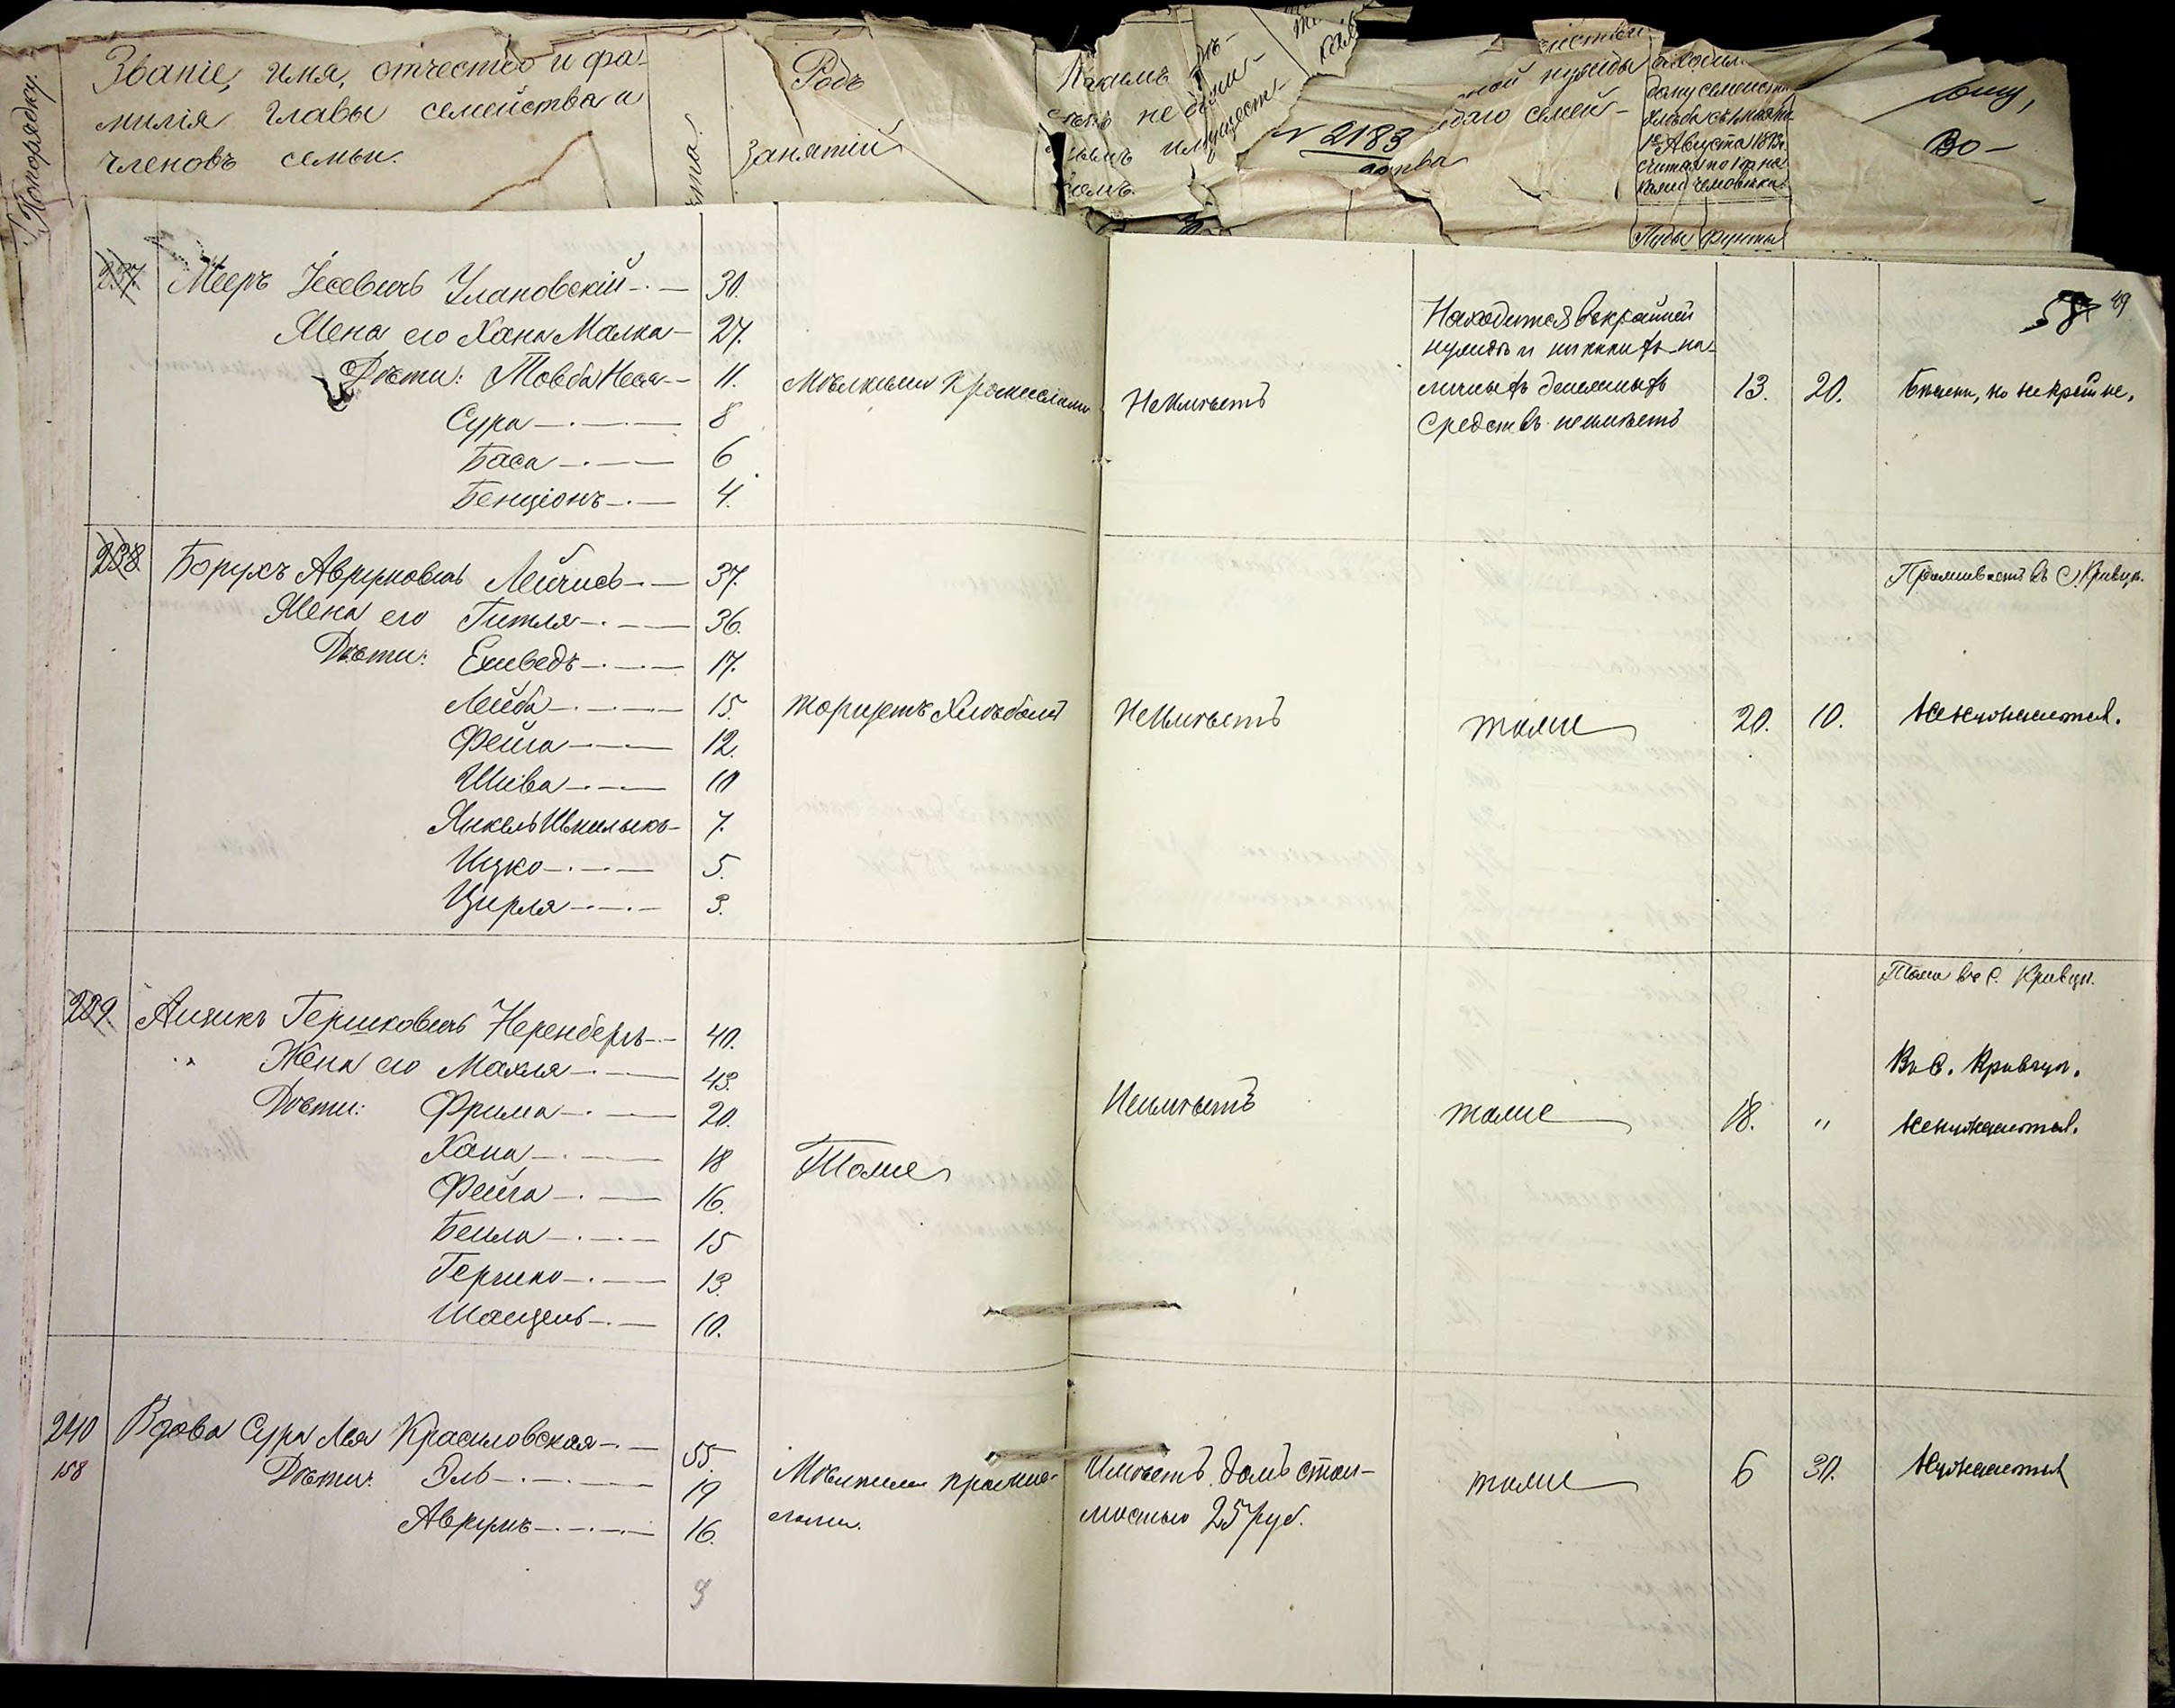 Попорядку.
Званіе, имя, отчество и фа-
милія главы семейства и
членовъ семьи.
Родъ
занятій
Какимъ
не движи-
мымъ имуществ-
№ 2183
ства
ной нужды
даго семей-
дому семейств
1го Августа 1893 г.
считая по 1 п. на
Пуды Фунты
Во-
58 49
237. Мееръ Іосевичъ Улановскій 30.
Жена его Хана Малка 27.
Дѣти: Товба Неса 11.
Сура 8
Баса 6
Бенціонъ 4.
Мѣлкими промыслами
Не имѣетъ
Находится въ крайней
нуждѣ и никакихъ на-
личныхъ денежныхъ
средствъ не имѣетъ
13. 20.
Бѣдны, но не крайне.
238 Борухъ Аврумовичъ Лейчисъ 37.
Жена его Гитля 36.
Дѣти: Ехиведъ 17.
Лейба 15.
Фейга 12.
Шива 10
Янкель Шмилыкъ 7.
Ицко 5.
Цирля 3.
торгуетъ Хлѣбомъ
Не имѣетъ
тоже
20. 10.
Проживаетъ въ С. Кривцл.
Не нуждается.
239. Аизикъ Гершковичъ Неренбергъ 40.
Жена его Махля 43.
Дѣти: Фрима 20.
Хана 18
Фейга 16.
Бейла 15
Гершко 13.
Шандель 10.
Тоже
Не имѣетъ
тоже
18. "
Тоже въ С. Кривцл.
Въ С. Кривцл.
Не нуждается.
240 Вдова Сура Лея Красиловская 55.
158
Дѣти: Эль 19
Аврумъ 16.
Мѣлкими промыс-
лами.
Имѣетъ домъ стои-
мостью 25 руб.
тоже
6 30.
Нуждается